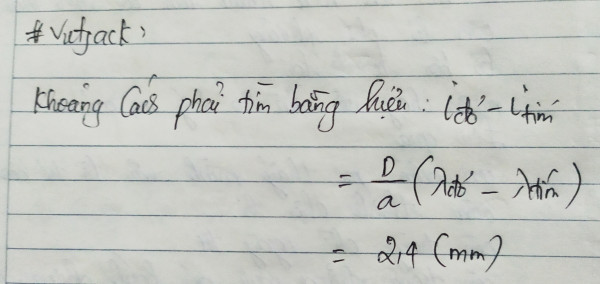 #Vutjack:
Khoảng Cács phải tìm bằng hiệu: i đỏ - i tím
= D/a (λđỏ - λtím)
= 2,4 (mm)